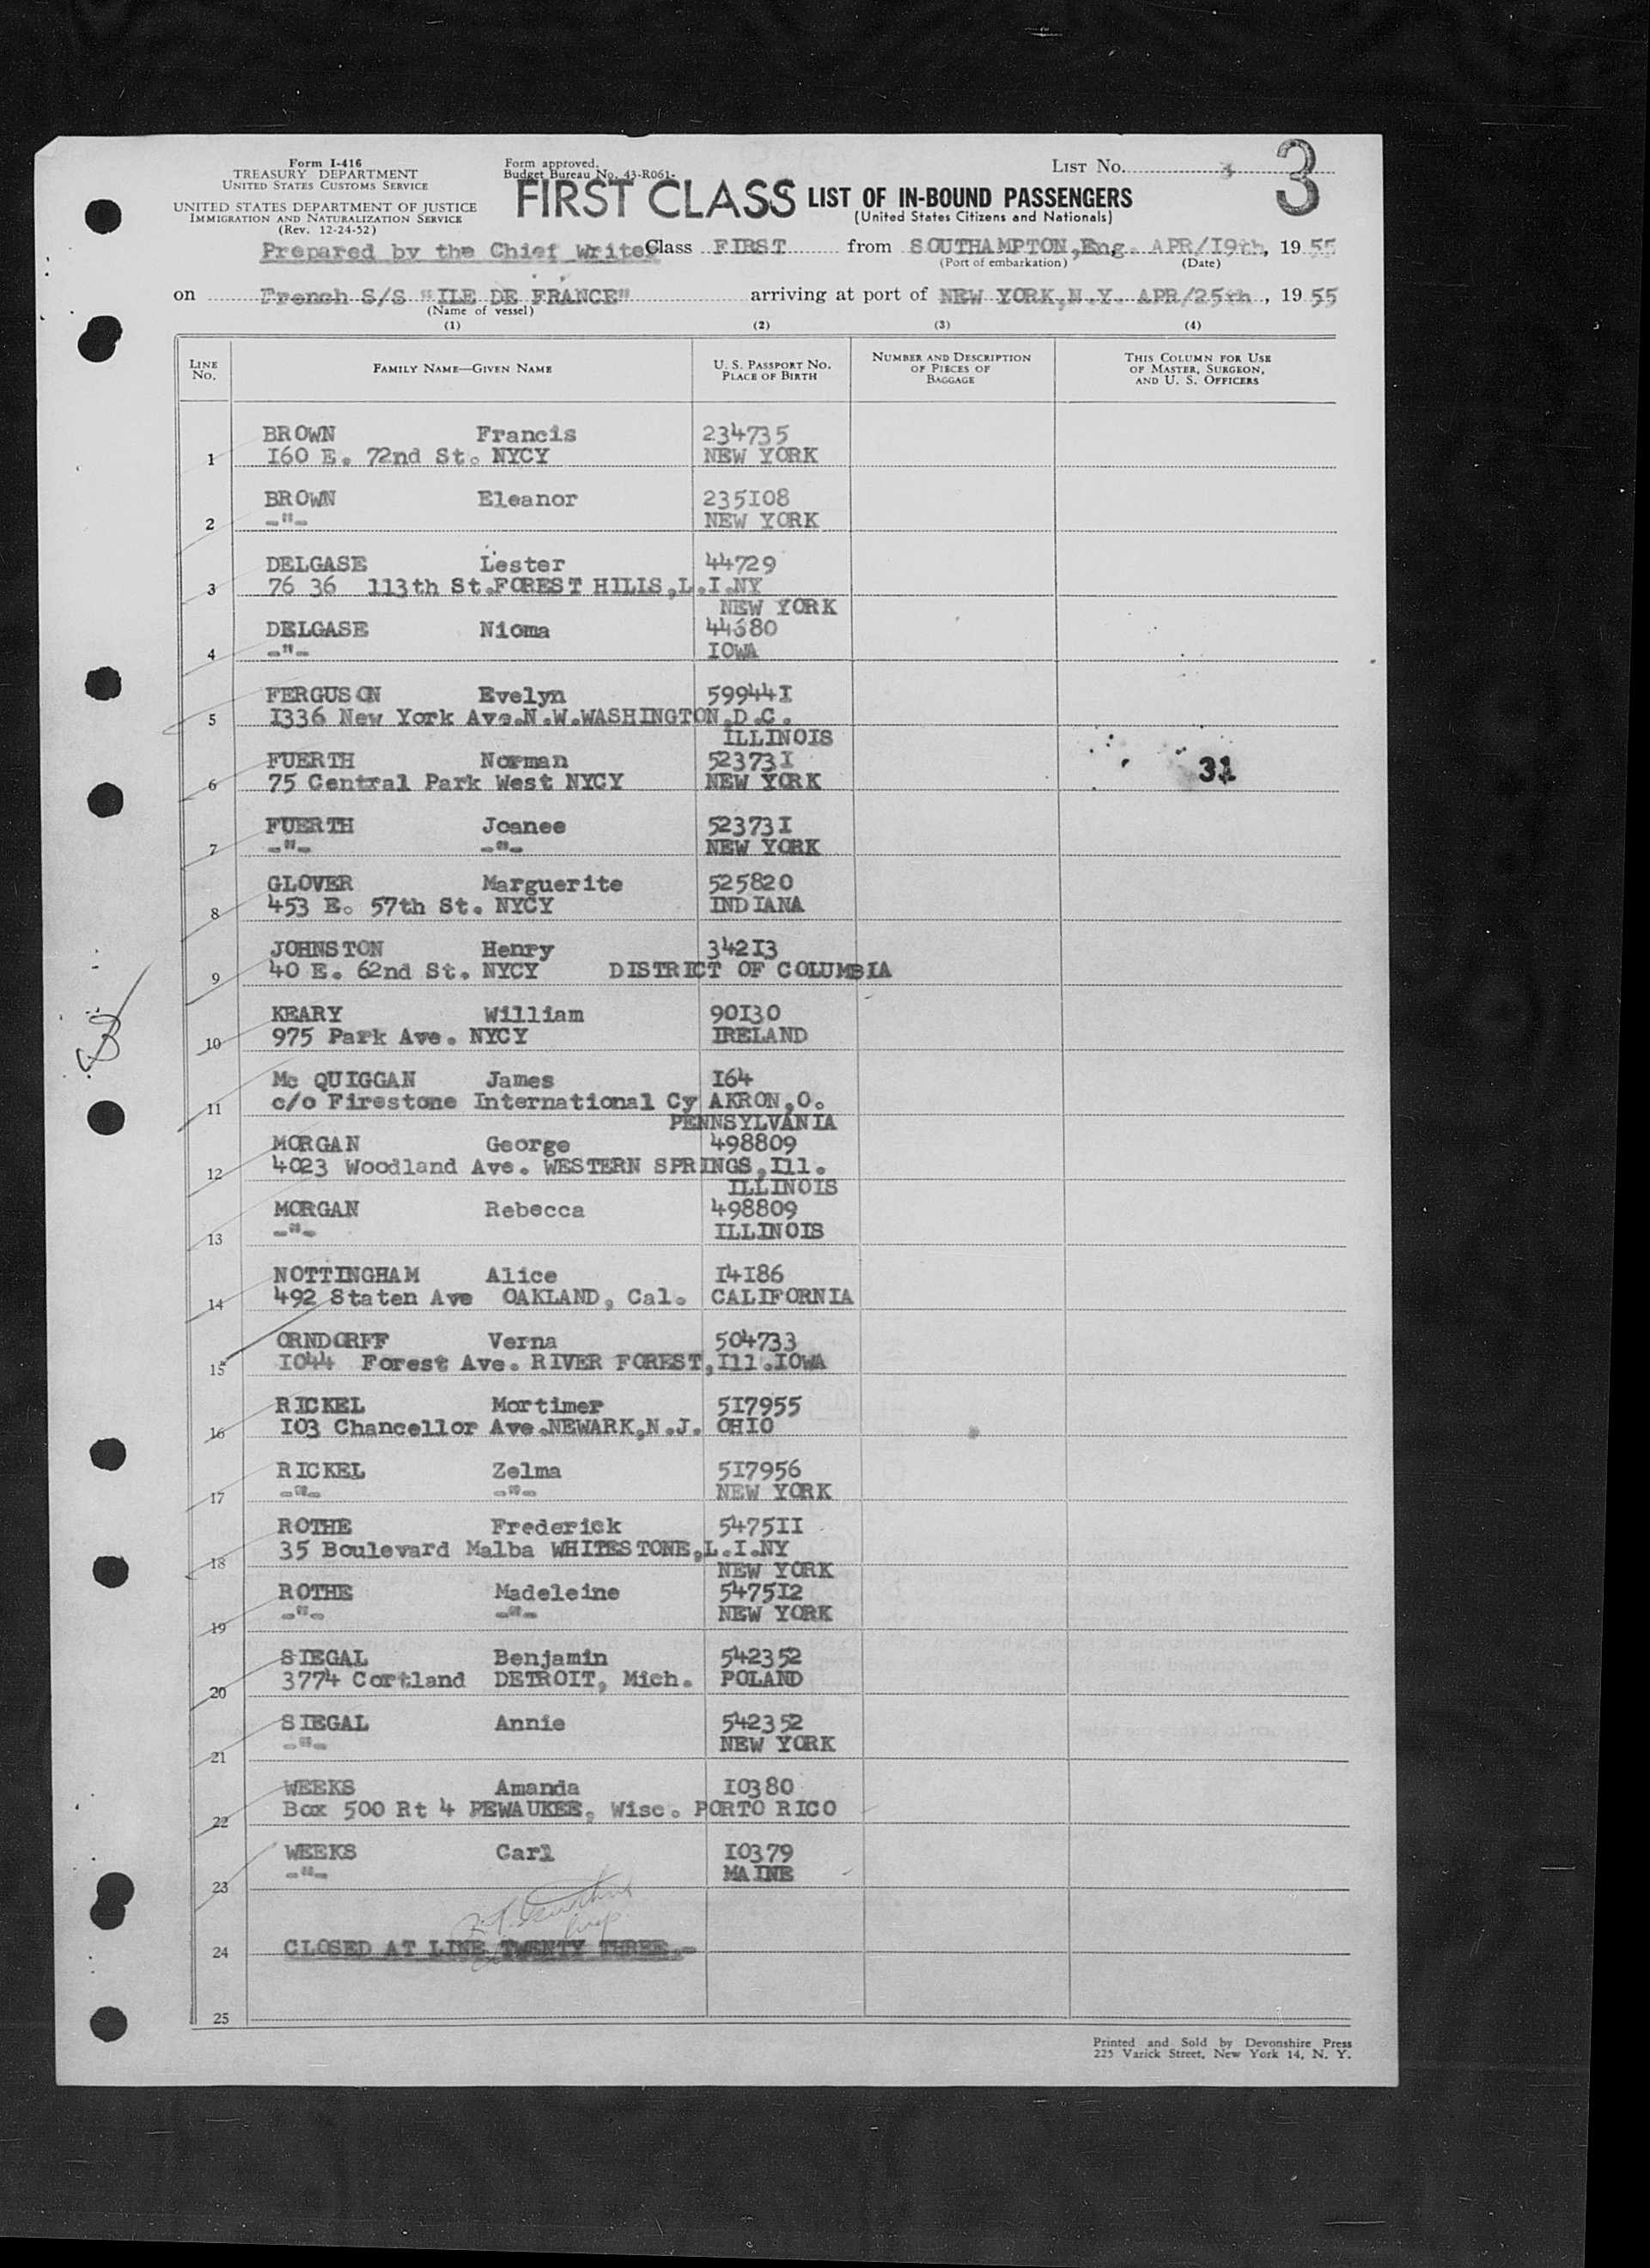 Form I-416
TREASURY DEPARTMENT
UNITED STATES CUSTOMS SERVICE
UNITED STATES DEPARTMENT OF JUSTICE
IMMIGRATION AND NATURALIZATION SERVICE
(Rev. 12-24-52)
Form approved.
Budget Bureau No. 43-R061-
LIST No. 3
3
FIRST CLASS LIST OF IN-BOUND PASSENGERS
(United States Citizens and Nationals)
Prepared by the Chief Writer Class FIRST from SOUTHAMPTON,Eng. APR/19th, 1955
(Port of embarkation) (Date)
on French S/S "ILE DE FRANCE" arriving at port of NEW YORK,N.Y. APR/25th, 1955
(Name of vessel)
(1) (2) (3) (4)
LINE No. FAMILY NAME—GIVEN NAME U. S. PASSPORT No. PLACE OF BIRTH NUMBER AND DESCRIPTION OF PIECES OF BAGGAGE THIS COLUMN FOR USE OF MASTER, SURGEON, AND U. S. OFFICERS
BROWN Francis 234735
1 I60 E. 72nd St. NYCY NEW YORK
BROWN Eleanor 235I08
2 -"- NEW YORK
DELGASE Lester 44729
3 76 36 113th St.FOREST HILLS,L.I.NY
NEW YORK
DELGASE Nioma 44680
4 -"- IOWA
FERGUSON Evelyn 59944I
5 I336 New York Ave.N.W.WASHINGTON,D.C.
ILLINOIS
FUERTH Norman 52373I
6 75 Central Park West NYCY NEW YORK
31
FUERTH Joanee 52373I
7 -"- -"- NEW YORK
GLOVER Marguerite 525820
8 453 E. 57th St. NYCY INDIANA
JOHNSTON Henry 342I3
9 40 E. 62nd St. NYCY DISTRICT OF COLUMBIA
KEARY William 90I30
10 975 Park Ave. NYCY IRELAND
Mc QUIGGAN James I64
11 c/o Firestone International Cy AKRON,O.
PENNSYLVANIA
MORGAN George 498809
12 4023 Woodland Ave. WESTERN SPRINGS,Ill.
ILLINOIS
MORGAN Rebecca 498809
13 -"- ILLINOIS
NOTTINGHAM Alice I4I86
14 492 Staten Ave OAKLAND, Cal. CALIFORNIA
ORNDORFF Verna 504733
15 I044 Forest Ave. RIVER FOREST,Ill.IOWA
RICKEL Mortimer 5I7955
16 I03 Chancellor Ave.NEWARK,N.J. OHIO
RICKEL Zelma 5I7956
17 -"- -"- NEW YORK
ROTHE Frederick 5475II
18 35 Boulevard Malba WHITESTONE,L.I.NY
NEW YORK
ROTHE Madeleine 5475I2
19 -"- -"- NEW YORK
SIEGAL Benjamin 542352
20 3774 Cortland DETROIT, Mich. POLAND
SIEGAL Annie 542352
21 -"- NEW YORK
WEEKS Amanda I0380
22 Box 500 Rt 4 PEWAUKEE, Wisc. PORTO RICO
WEEKS Carl I0379
23 -"- MAINE
24 CLOSED AT LINE TWENTY THREE.-
25
Printed and Sold by Devonshire Press
225 Varick Street, New York 14, N. Y.